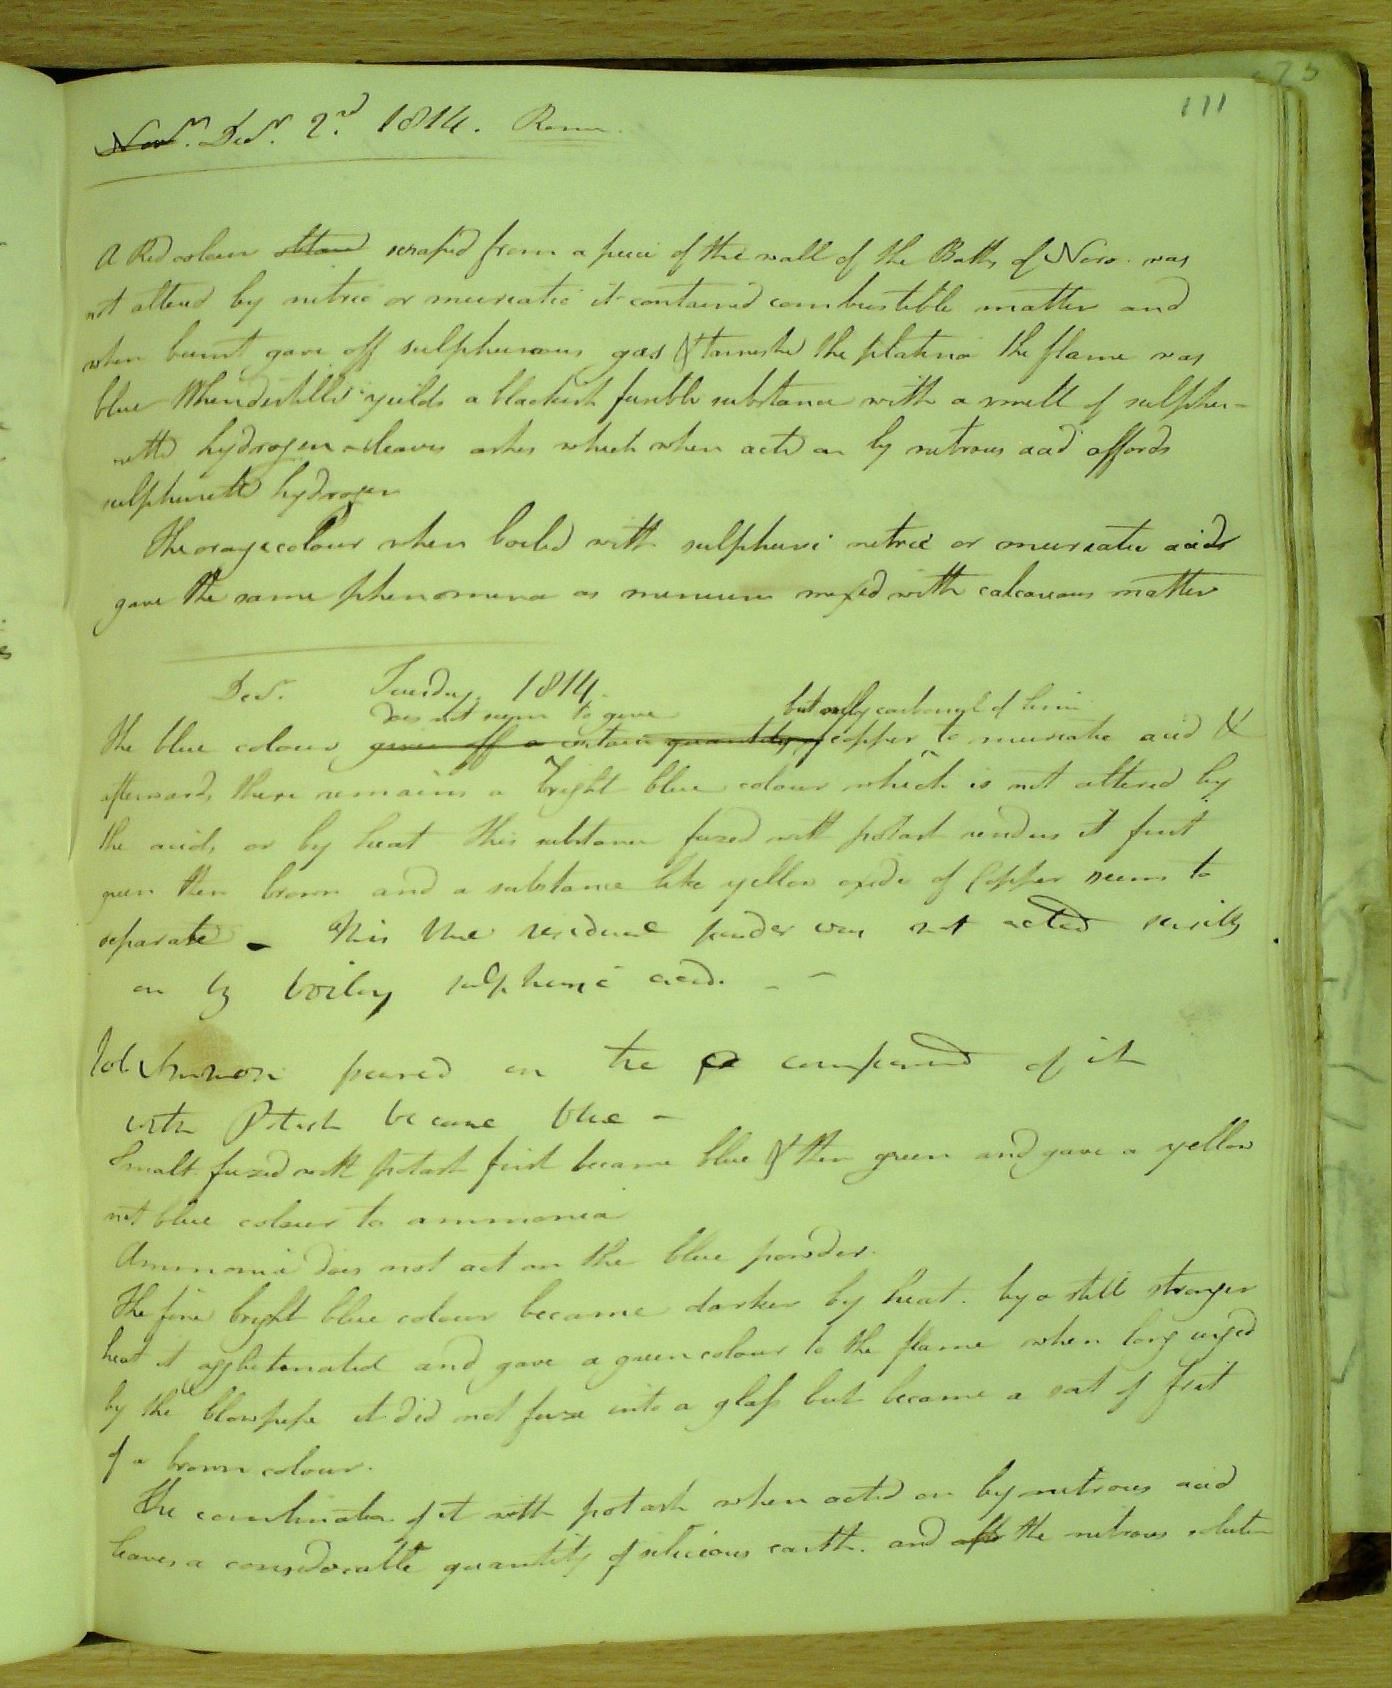 111
Novr. Decr. 2nd. 1814. Rome.
A Red colour scraped from a piece of the wall of the Baths of Nero was
not altered by nitric or muriatic it contained combustible matter and
when burnt gave off sulphurous gas & tarnished the platina the flame was
blue When distilled yeilds a blackish fusible substance with a smell of sulphu-
retted hydrogen & leaves ashes which when acted on by nitrous acid affords
sulphurettd hydrogen
The orange colour when boiled with sulphuric nitric or muriatic acids
gave the same phenomena as minium mixed with calcareous matter
Decr. Tuesday. 1814.
does not seem to give but only carbonate of lime
the blue colour gives off a certain quantity of copper to muriatic acid &
afterwards there remains a bright blue colour which is not altered by
the acids or by heat this substance fused with potash renders it first
green then brown and a substance like yellow oxide of Copper seems to
separate - This blue residual powder was not acted sensibly
on by boiling sulphuric acid. -
Sol Ammon poured on the compound of it
with Potash became blue -
Smalt fuzed with potash first became blue & then green and gave a yellow
not blue colour to ammonia
Ammonia does not act on the blue powder.
The fine bright blue colour became darker by heat. by a still stronger
heat it agglutenated and gave a green colour to the flame when long urged
by the blowpipe it did not fuse into a glass but became a sort of frit
of a brown colour.
The combination of it with potash when acted on by nitrous acid
leaves a considerable quantity of silicious earth. and the nitrous solution